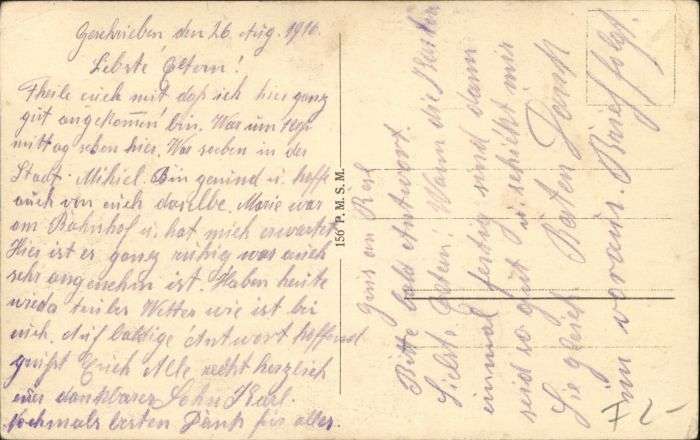 Geschrieben den 26. Aug. 1916.
Liebste Eltern!
Theile euch mit daß ich hier ganz
gut angekommen bin. War um
mittag schon hier. War soeben in der
Stadt. Bin gesund u. hoffe
auch von euch daselbe. Marie war
am Bahnhof u. hat mich erwartet.
Hier ist es ganz ruhig was auch
sehr angenehm ist. Haben heute
wieda Wetter wie ist bei
euch. Auf baldige Antwort hoffend
grüßt Euch Alle recht herzlich
euer dankbarer Sohn Karl.
nochmals besten Dank für alles.
150 P. M. S. M.
Gruss an
Bitte bald Antwort.
Liebste Eltern! Wann die
einmal fertig sind dann
seid so gut u. schickt mir
Sie gleich. Besten Dank
im voraus. Brief folgt.
72-